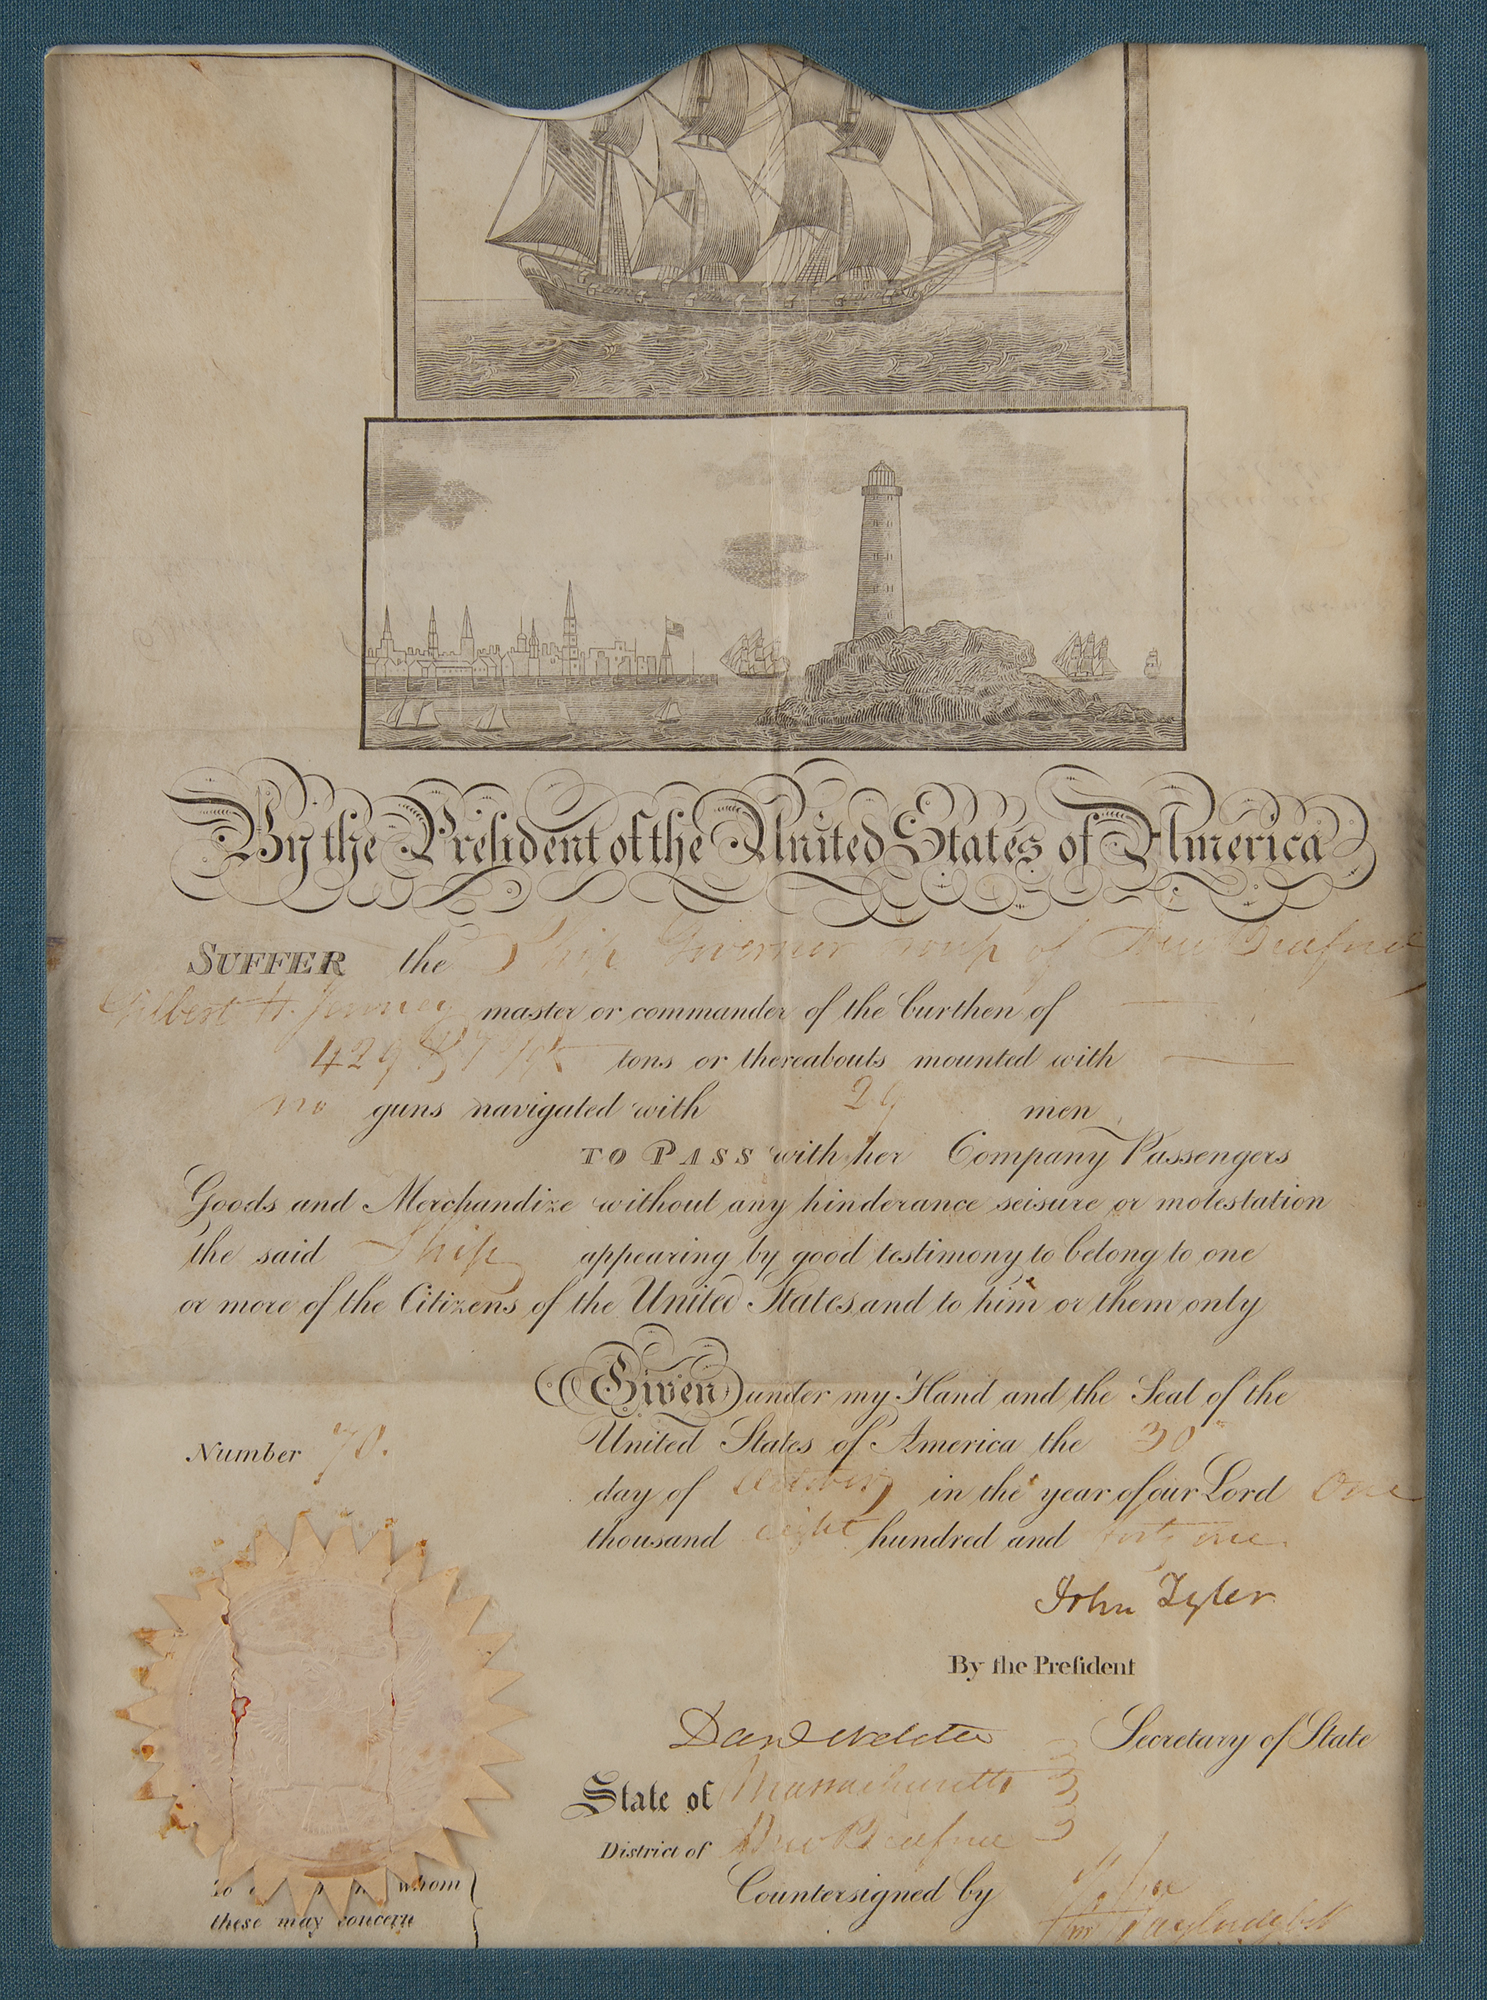 By the President of the United States of America
SUFFER the Ship Governor Troup of New Bedford
Gilbert H. Jenney master or commander of the burthen of
429 tons or thereabouts mounted with
no guns navigated with 29 men
TO PASS with her Company Passengers
Goods and Merchandize without any hinderance seisure or molestation
the said Ship appearing by good testimony to belong to one
or more of the Citizens of the United States and to him or them only
Given under my Hand and the Seal of the
United States of America the 30th
Number 70.
day of October in the year of our Lord One
thousand eight hundred and forty one.
John Tyler
By the Preſident
Danl Webster Secretary of State
State of Massachusetts
District of New Bedford
Countersigned by
To whom
these may concern